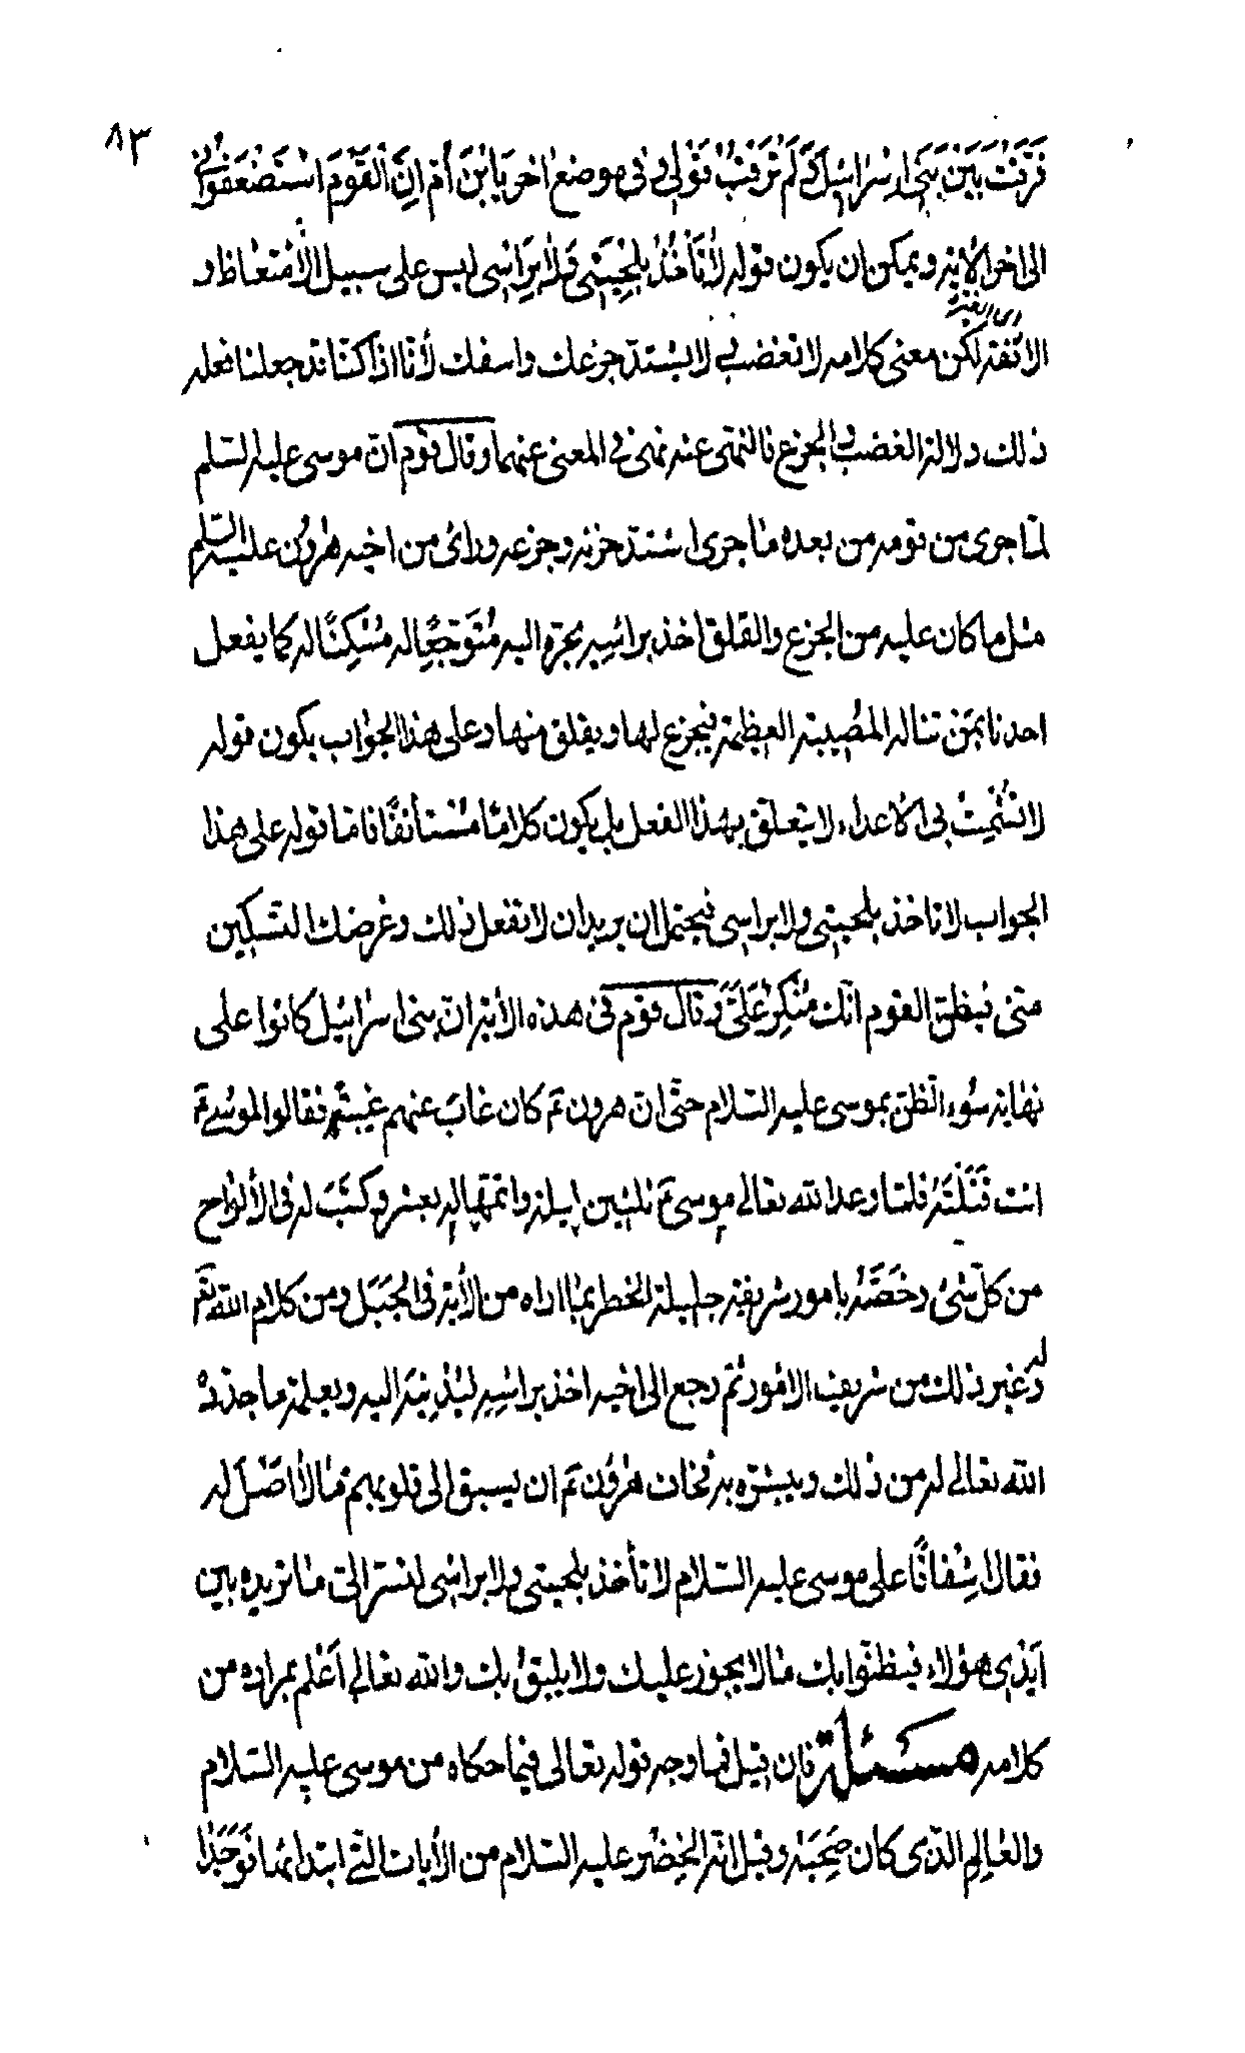 ٨٣
فَرَّقْتَ بَيْنَ بَنِي اِسْرٰائيلَ وَلَمْ تَرْقُبْ قَوْلي و في موضع اخر يَا بْنَ أُمَّ اِنَّ الْقَوْمَ اسْتَضْعَفُوني
الى اخر الاٰية و يمكن ان يكون قوله لاٰ تَأْخُذْ بِلِحْيَتي وَلاٰ بِرَاْسي ليس على سبيل الاْمتعٰاظ و
الاَنفة لكن معنى كلامه لا تغضب و لا يشتدّ جزعك و اسفك لأنّا اذا كنّا قد جعلنا فعله
ذلك دلالة الغضب و الجزع فالنهى عنه نهى في المعنى عنهما و قال قوم انّ موسى عليه السّلم
لمّا جرى من قومه من بعده مٰا جرى اشتدّ حزنه و جزعه و رائ من اخيه هٰرون عليه السّلم
مثل ما كان عليه من الجزع و القلق اخذ براسه يجرّه اليه مُتَوَجِّعًا له مُسَكِّنًا له كما يفعل
احدنا بمَن تناله المصيبة العظيمة فيجزع لها و يقلق منها و على هذا الجوٰاب يكون قوله
لا تُشْمِتْ بى الاعداء لا يتعلّق بهذا الفعل بل يكون كلامًا مُسْتأنَفًا فامّا قوله على هذا
الجواب لا تاخذ بلحيتى ولا براسى فيحتمل ان يريد ان لا تفعل ذلك و غرضك التسكين
متى فيظنّ القوم انّك مُنْكِرٌ عَلَيَّ و قال قوم في هذه الاٰية انّ بنى اسرٰائيل كانوا على
نهٰاية سُوء الظنّ بموسى عليه السّلام حتّى انّ هرون ع كان غابَ عنهم غَيْبَةً فقالوا لموسى ع
انت قَتَلْتَهُ فلمّا وعد الله تعالى موسى ع ثلثين ليلة و اتمّها له بعشر و كَتَبَ له في الألوٰاح
من كلّ شئ و خَصَّهُ بامور شريفة جليلة الخطر بمٰا اراه من الاٰية في الجَبَل و من كلام الله تع
له و غير ذلك من شريف الامُور ثمّ رجع الى اخيه اخذ براسِه ليُدْنِيَه اليه و يعلمه ما جدّدهُ
الله تعالى له من ذلك و يبشّره به فخاف هٰرون ع ان يسبق الى قلوبهم مٰا لاٰ اَصْلَ له
فقال اِشْفاقًا على موسى عليه السّلام لا تأخذ بلحيتى ولا براسى لتسرّ الىّ مٰا تريده بين
اَيْدى هؤلاء فيظنّوا بك مٰا لا يجوز عليك ولا يليق بك و الله تعالى اَعْلم بمراده من
كلامه مسئلة فان قيل فما وجه قوله تعالى فيما حكاه من موسى عليه السّلام
و العٰالِمِ الّذى كان صَحِبَهُ و قيل انّه الخِضْر عليه السّلام من الأيات التي ابتداؤها فَوَجَدٰا